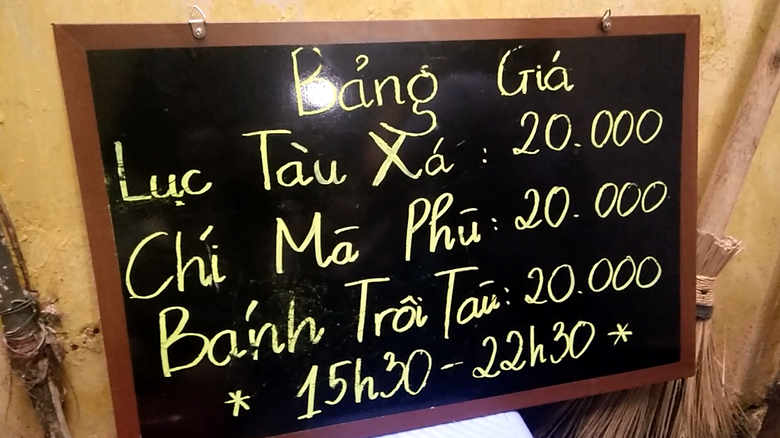 Bảng Giá
Lục Tàu Xá : 20.000
Chí Mā Phū : 20.000
Bánh Trôi Tàu : 20.000
* 15h30 - 22h30 *